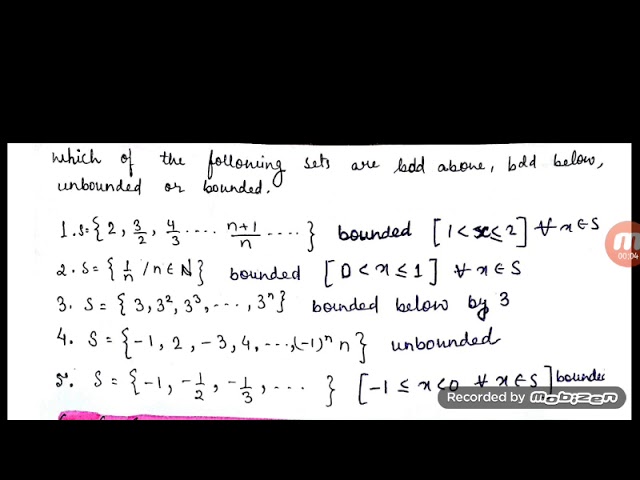 which of the following sets are bdd above, bdd below,
unbounded or bounded.
1. S={2, 3/2, 4/3 .... n+1/n ....} bounded [1<x≤2] ∀ x∈S
2. S={1/n / n∈N} bounded [0<x≤1] ∀ x∈S
3. S={3, 3², 3³, ..., 3ⁿ} bounded below by 3
4. S={-1, 2, -3, 4, ..., (-1)ⁿ n} unbounded
5. S={-1, -1/2, -1/3, .... } [-1≤x<0 ∀ x∈S] bounded
00:04
Recorded by
MOBIZEN